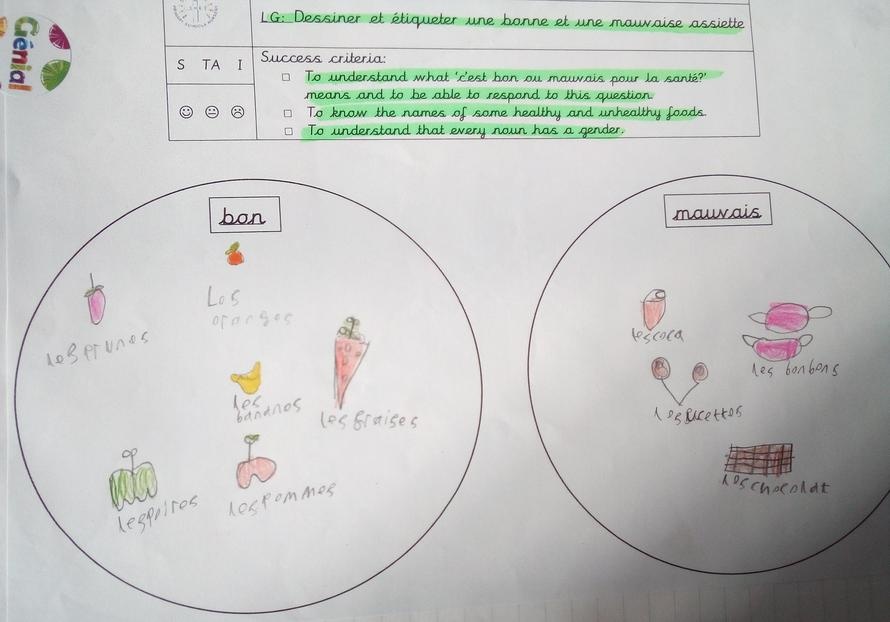 Génial
LG: Dessiner et étiqueter une bonne et une mauvaise assiette
S TA I
Success criteria:
To understand what 'c'est bon ou mauvais pour la santé?'
means and to be able to respond to this question.
To know the names of some healthy and unhealthy foods.
To understand that every noun has a gender.
bon
les prunes
Les
oranges
les
bananes
les fraises
les poires
les pommes
mauvais
les coca
les bonbons
les chocolat